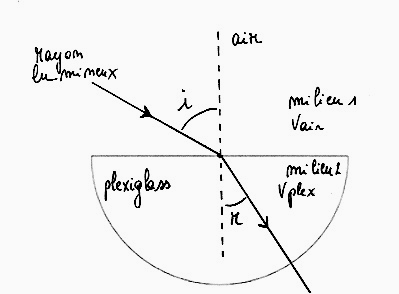 air
rayon
lumineux
i
milieu 1
Vair
plexiglass
milieu 2
Vplex
r